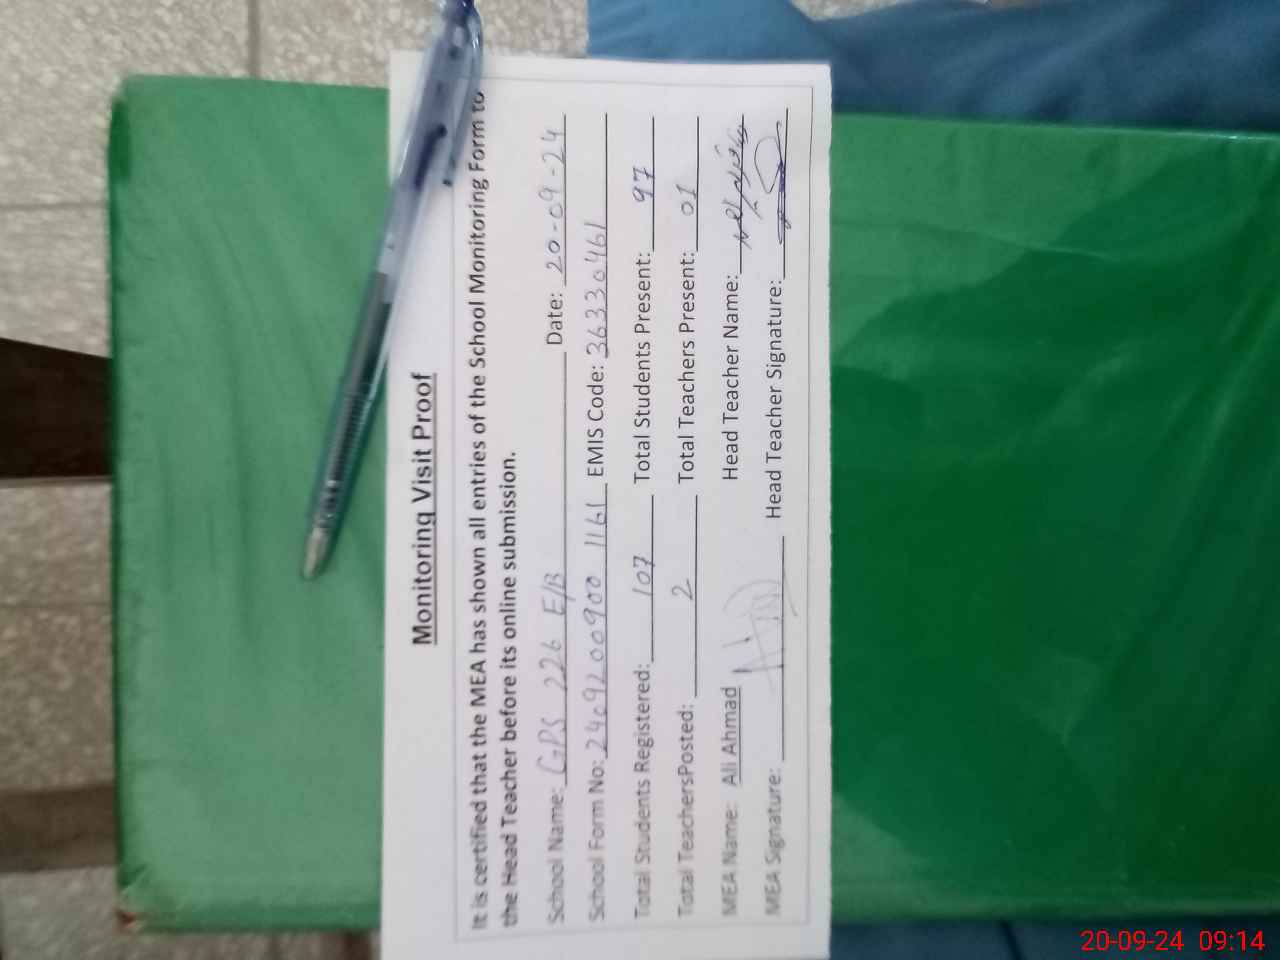 Monitoring Visit Proof
It is certified that the MEA has shown all entries of the School Monitoring Form to
the Head Teacher before its online submission.
School Name: GPS 226 E/B Date: 20-09-24
School Form No: 24092009001161 EMIS Code: 36330461
Total Students Registered: 107 Total Students Present: 97
Total TeachersPosted: 2 Total Teachers Present: 01
MEA Name: Ali Ahmad Head Teacher Name:
MEA Signature: Head Teacher Signature:
20-09-24 09:14